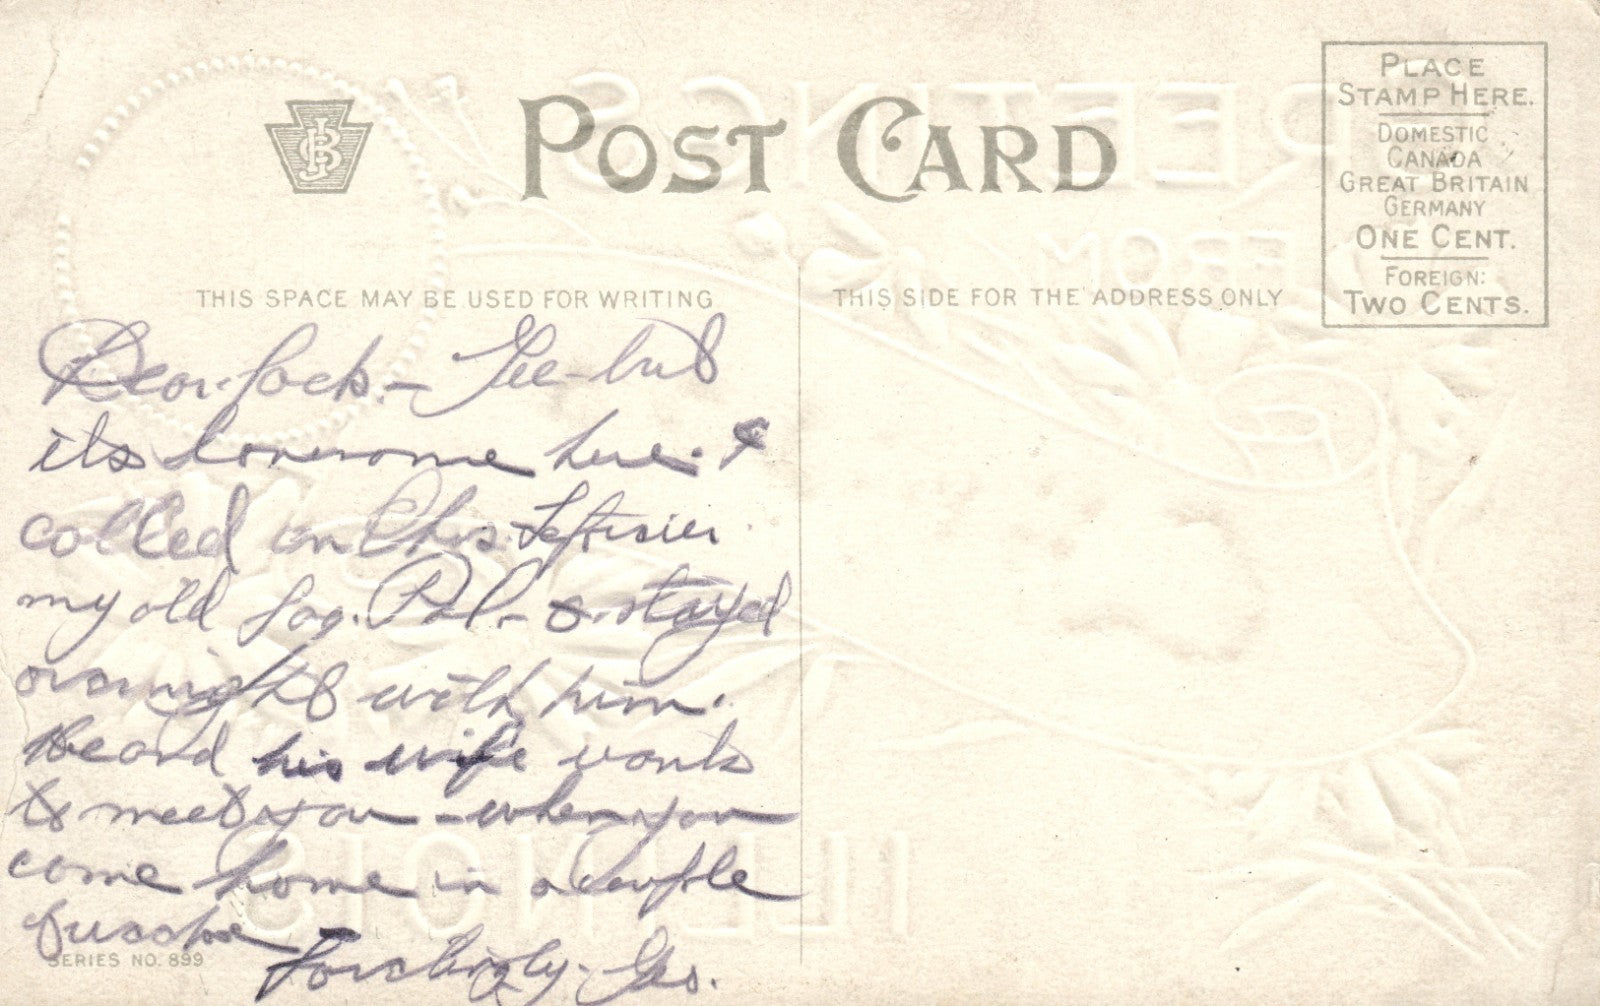 POST CARD
PLACE
STAMP HERE.
DOMESTIC
CANADA
GREAT BRITAIN
GERMANY
ONE CENT.
FOREIGN:
TWO CENTS.
GREETINGS
FROM
THIS SPACE MAY BE USED FOR WRITING
THIS SIDE FOR THE ADDRESS ONLY
Dear Jack. – Gee – but
its lonesome here. &
called on Chas.
my old Pal. – & stayed
overnight with him.
Heard his wife wants
to meet you – when you
come home in a couple
Geo.
ILLINOIS
SERIES NO. 899